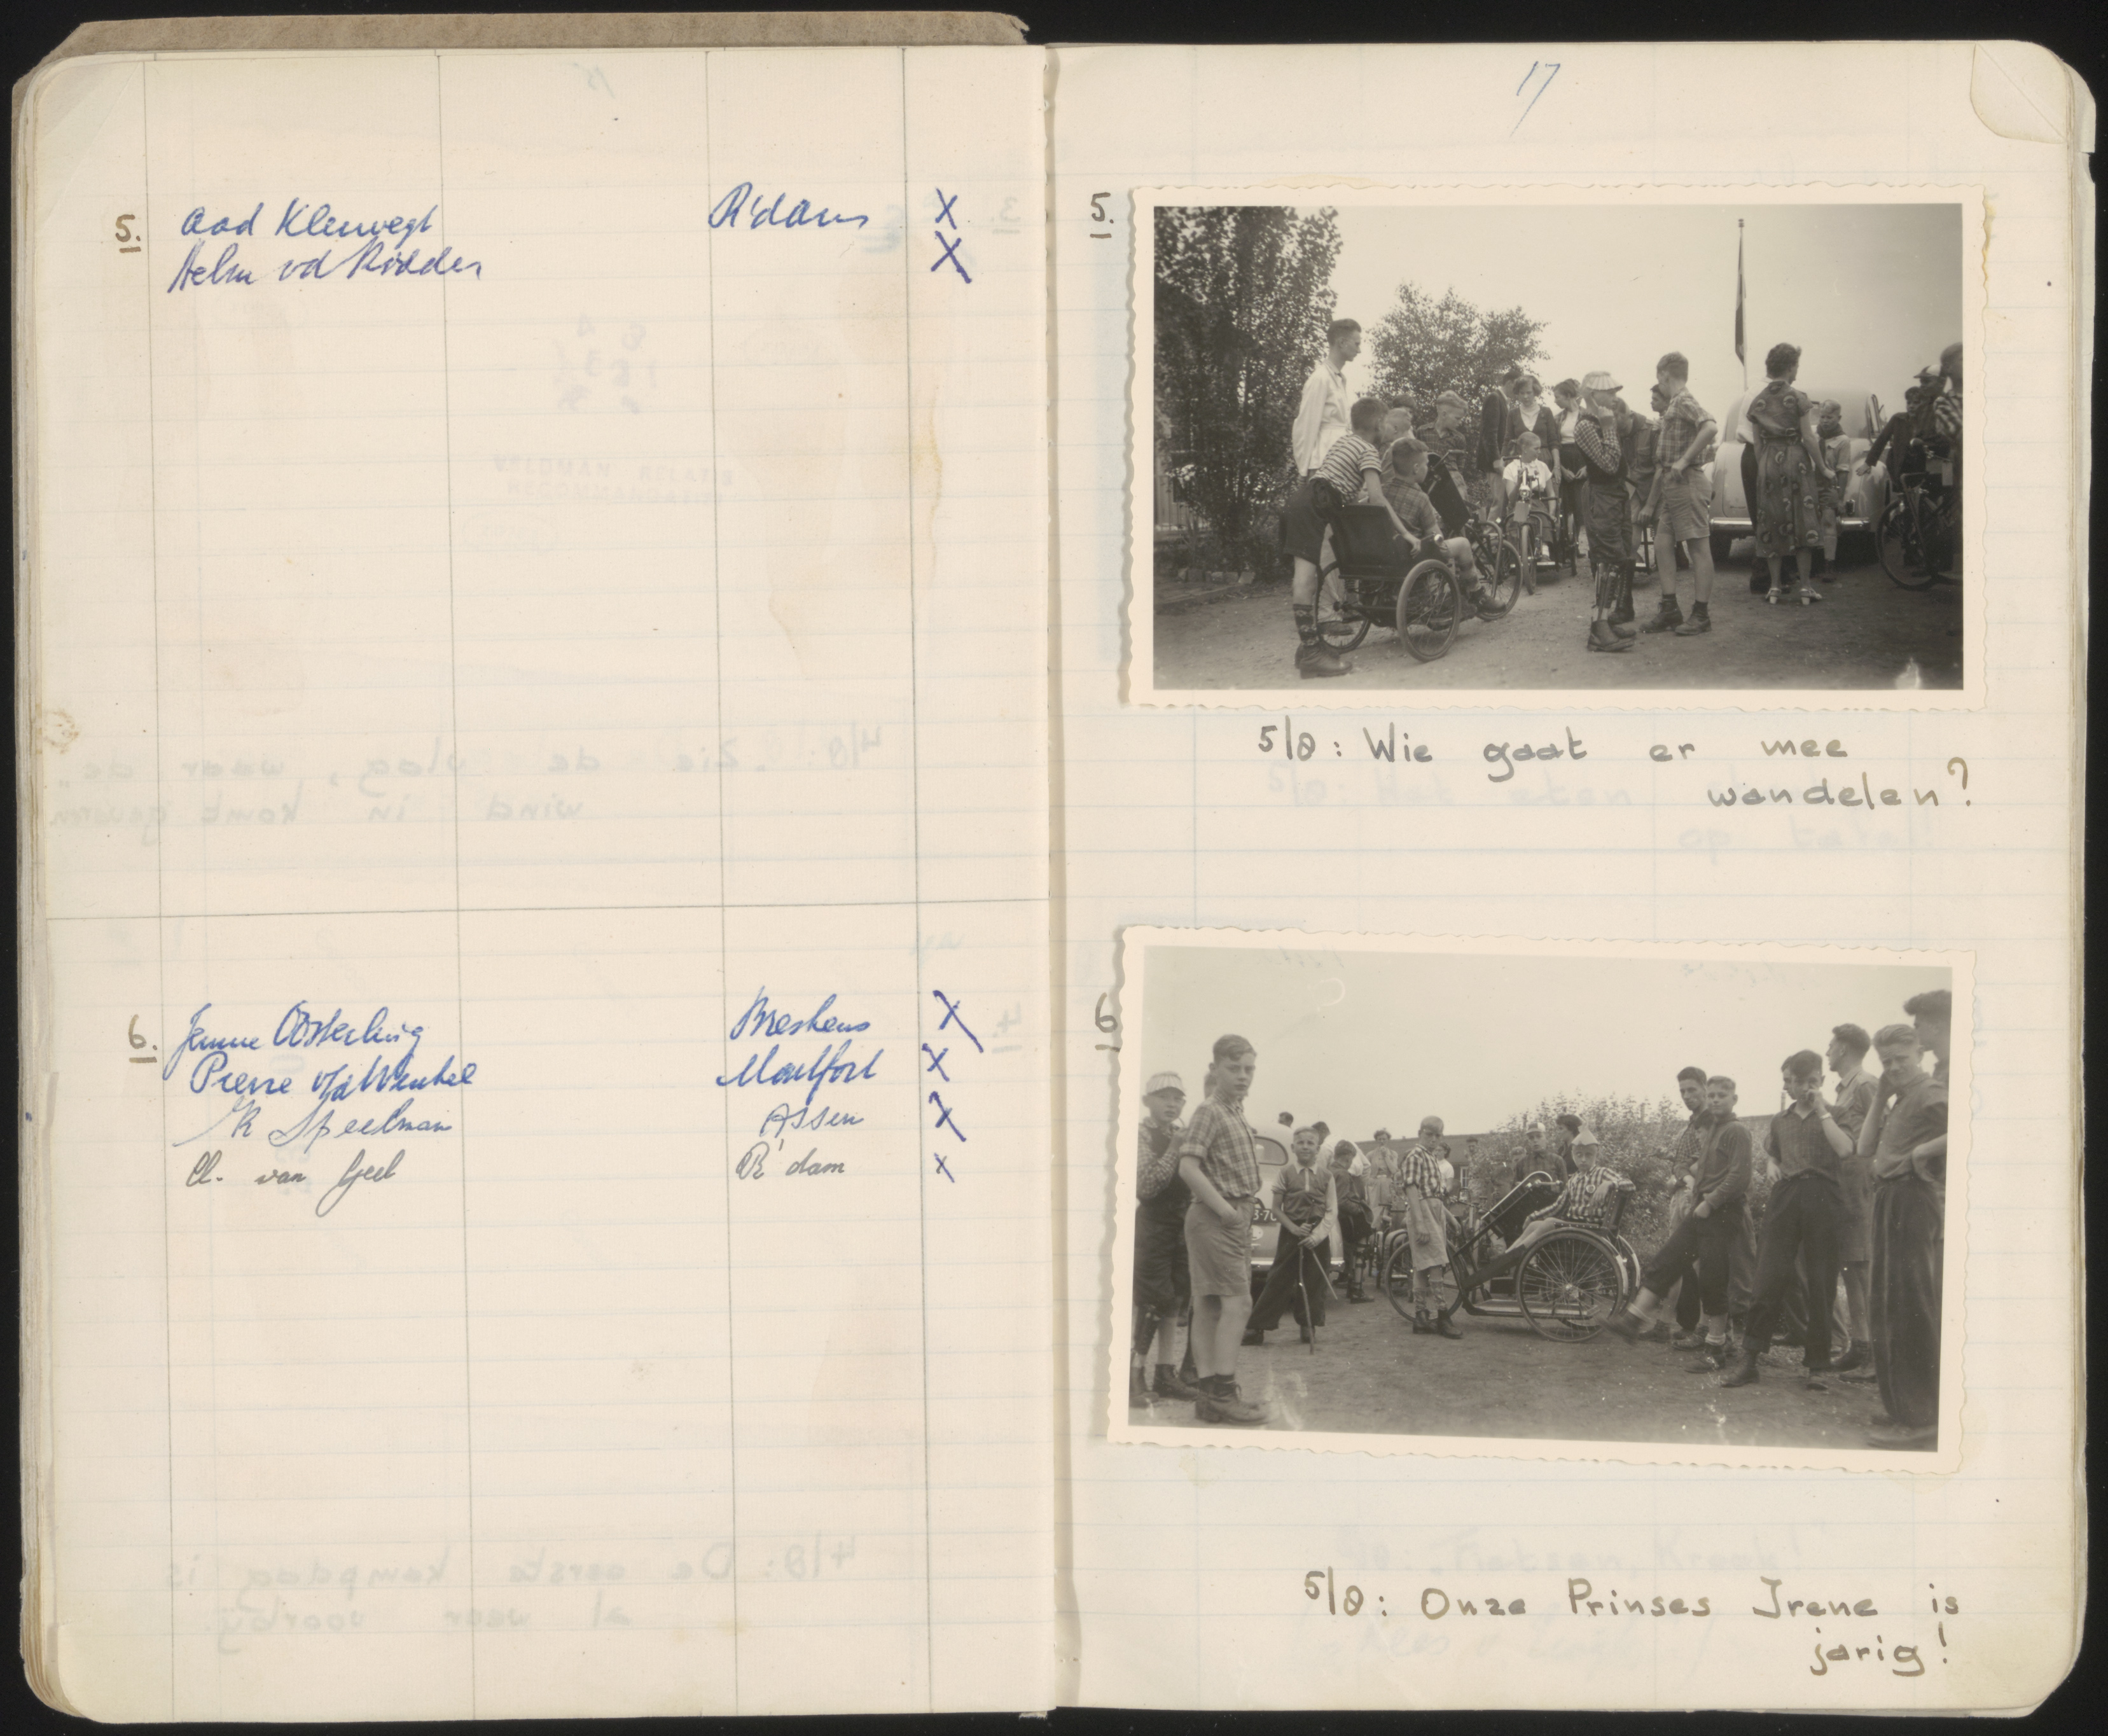 5. Aad Kleiwegt R'dam X
Helm vd Ridder X
6. Jenne Oosterling Breskens X
Pierre v/d Winkel Montfort X
K Speelman Assen X
A. van Geel R'dam x
17
5.
5/8: Wie gaat er mee
wandelen?
6
5/8: Onze Prinses Irene is
jarig!